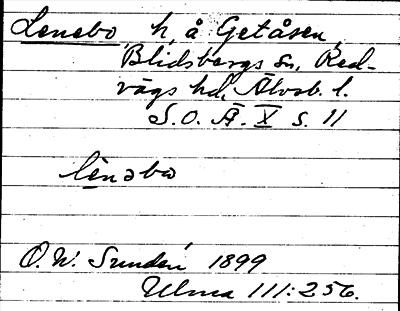 Lenebo h, å Getåsen,
Blidsbergs sn, Red-
vägs hd. Älvsb. l.
S. O. Ä. X s. 11
lènəbo
O. W. Sundén 1899
Ulma 111:256.